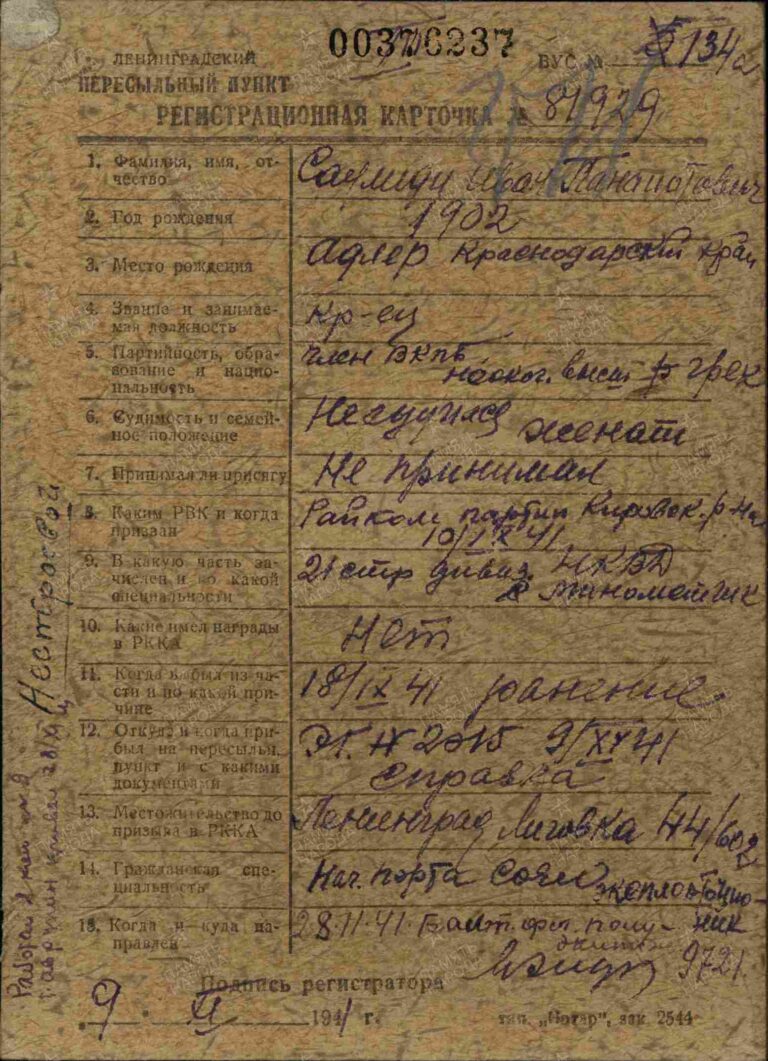 00376237
ЛЕНИНГРАДСКИЙ
ВУС № 134а
ПЕРЕСЫЛЬНЫЙ ПУНКТ
РЕГИСТРАЦИОННАЯ КАРТОЧКА № 81929
1. Фамилия, имя, от-
чество
Иван Панаиотович
2. Год рождения 1902
3. Место рождения Адлер Краснодарский край
4. Звание и занимае-
мая должность
кр-ец
5. Партийность, обра-
зование и нацио-
нальность
член ВКПб
неокон. высш грек
6. Судимость и семей-
ное положение
Не судился женат
7. Принимал ли присягу Не принимал
8. Каким РВК и когда
призван
Райком партии Кировск. р-на
10/IX 41
9. В какую часть за-
числен и по какой
специальности
21 стр дивиз. НКВД
минометчик
10. Какие имел награды
в РККА
Нет
11. Когда выбыл из ча-
сти и по какой при-
чине
18/IX 41 ранение.
12. Откуда и когда при-
был на пересыльн.
пункт и с какими
документами
ЭГ. № 2015 9/XI 41
справка
13. Местожительство до
призыва в РККА
Ленинград Лиговка 44/602
14. Гражданская спе-
циальность
Нач. порта
эксплоатацио-
ник
15. Когда и куда на-
правлен
28.11.41. Балт. фл. полу-
экипаж
9721
Подпись регистратора
9 XI 1941 г.
тип. „Котар", зак. 2544
Нестроевой
Работал